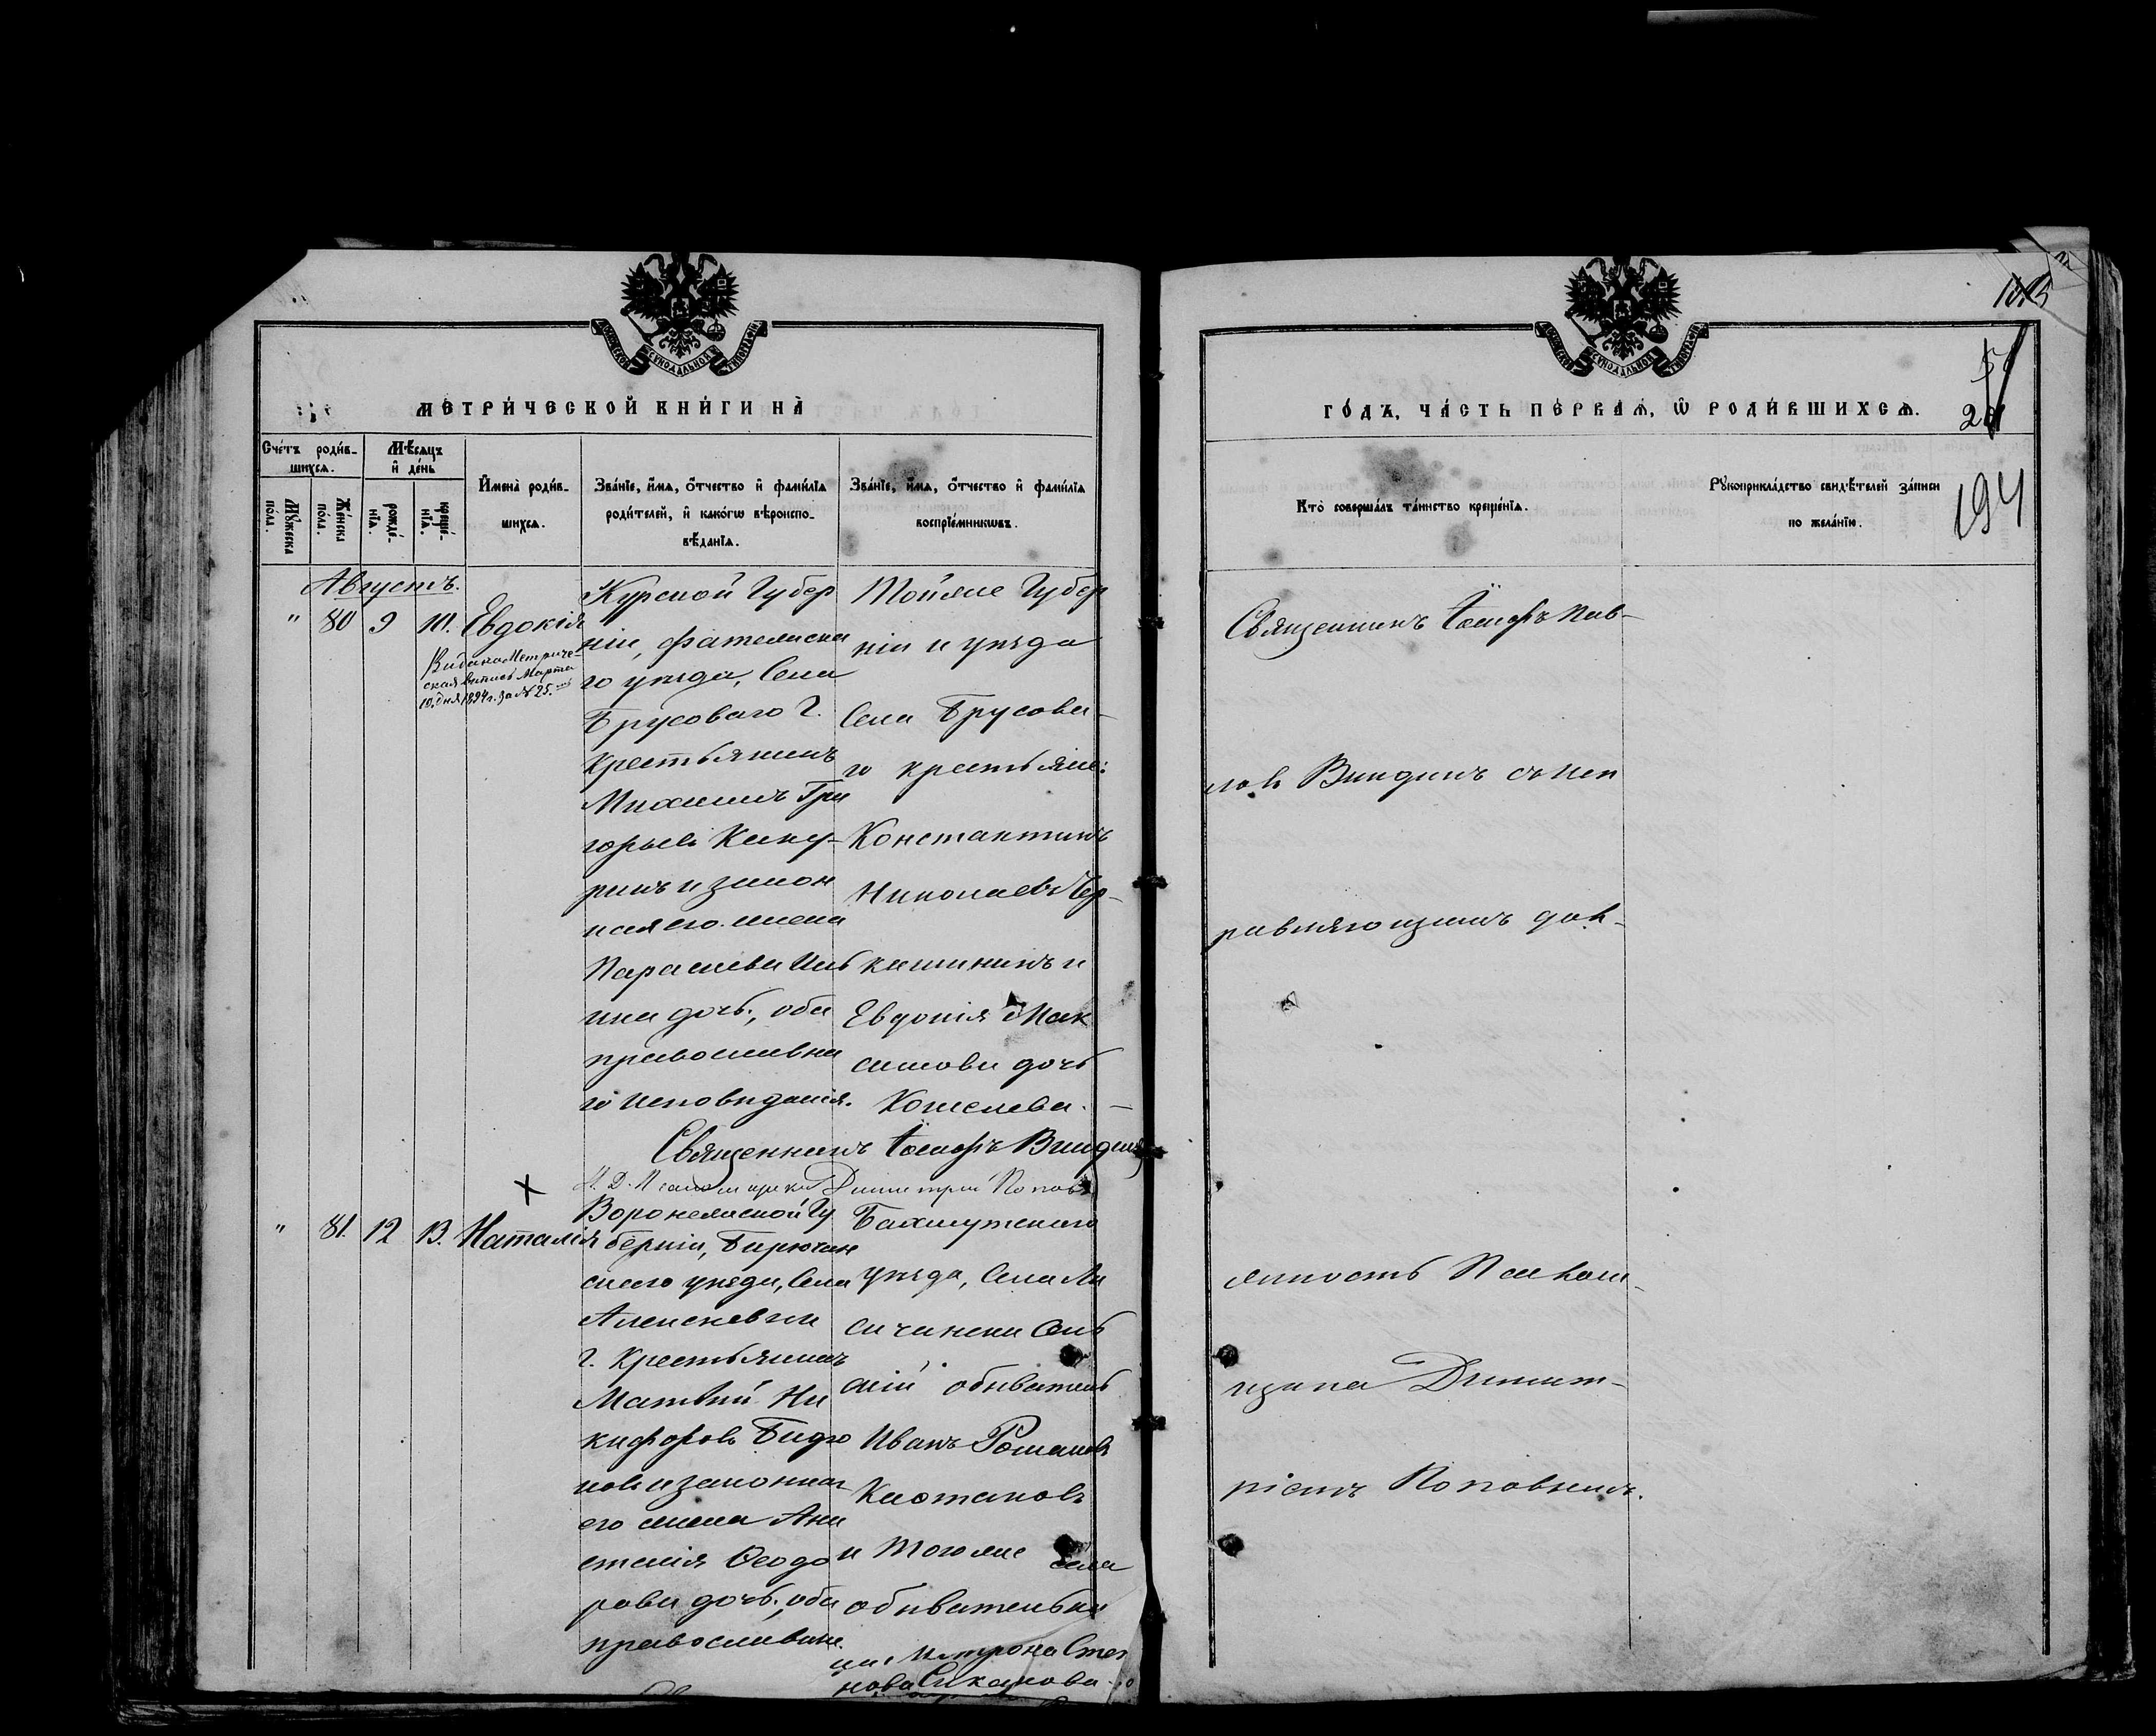 МЕТРИ́ЧЕСКОЙ КНИ́ГИ НА̀
Сче́тъ роди́в-
шихсѧ.
Мꙋжеска
по́ла.
Же́нска
по́ла.
Мѣ́сѧцъ
и҆ де́нь
рожде́-
нїѧ.
креще́-
нїѧ.
И҆мена̀ роди́в-
шихсѧ.
Зва́нїе, и҆́мѧ, ѻ҆́тчество и҆ фами́лїѧ
роди́телей, и҆ како́гѡ вѣроиспо-
вѣ́данїѧ.
Зва́нїе, и҆́мѧ, ѻ҆́тчество и҆ фами́лїѧ
воспрїе́мникѡвъ.
Августъ.
" 80 9 10. Евдокія
Видана Метриче-
ская выпись Марта
10. дня 1894 г. за № 25.
Курской Губер
ніи, Фатежска
го уѣзда, Села
Брусоваго г.
Крестьянинъ
Михаилъ Гри
горьевъ
и закон
ная его жена
дочь, оба
православна
го исповѣданія.
Тойже Губер
ніи и уѣзда
Села Брусова-
го крестьяне:
Константинъ
Николаевъ Чер-
и
Евдокія Мак
симова дочь
Кошелева.
Священникъ Іосифъ
И. Д. Псаломщика Димитрій Поповъ
" 81. 12 13. Наталія
Воронежской Гу
берніи, Бирючен
скаго уѣзда, Села
Алексѣевки
г. Крестьянинъ
Матвѣй Ни
кифоровъ
и законная
его жена Ана
стасія Ѳеодо
рова дочь, оба
православна
Бахмутскаго
уѣзда, Села Ли
сичанска Сель
скій обыватель
Иванъ Романовъ
и тогоже села
обывательни
ца, Матрона Сте
нова
ГО́ДЪ, ЧА́СТЬ ПЕ́РВАѦ, Ѡ҆ РОДИ́ВШИХСѦ.
194
Кто̀ соверша́лъ та́инство креще́нїѧ.
Рꙋкоприкла́дство свидѣ́телей за́писи
по жела́нїю.
Священникъ Іосифъ Пав-
ловъ съ исп
равляющимъ долж-
яность Псалом-
щика Димит-
ріемъ Поповымъ.